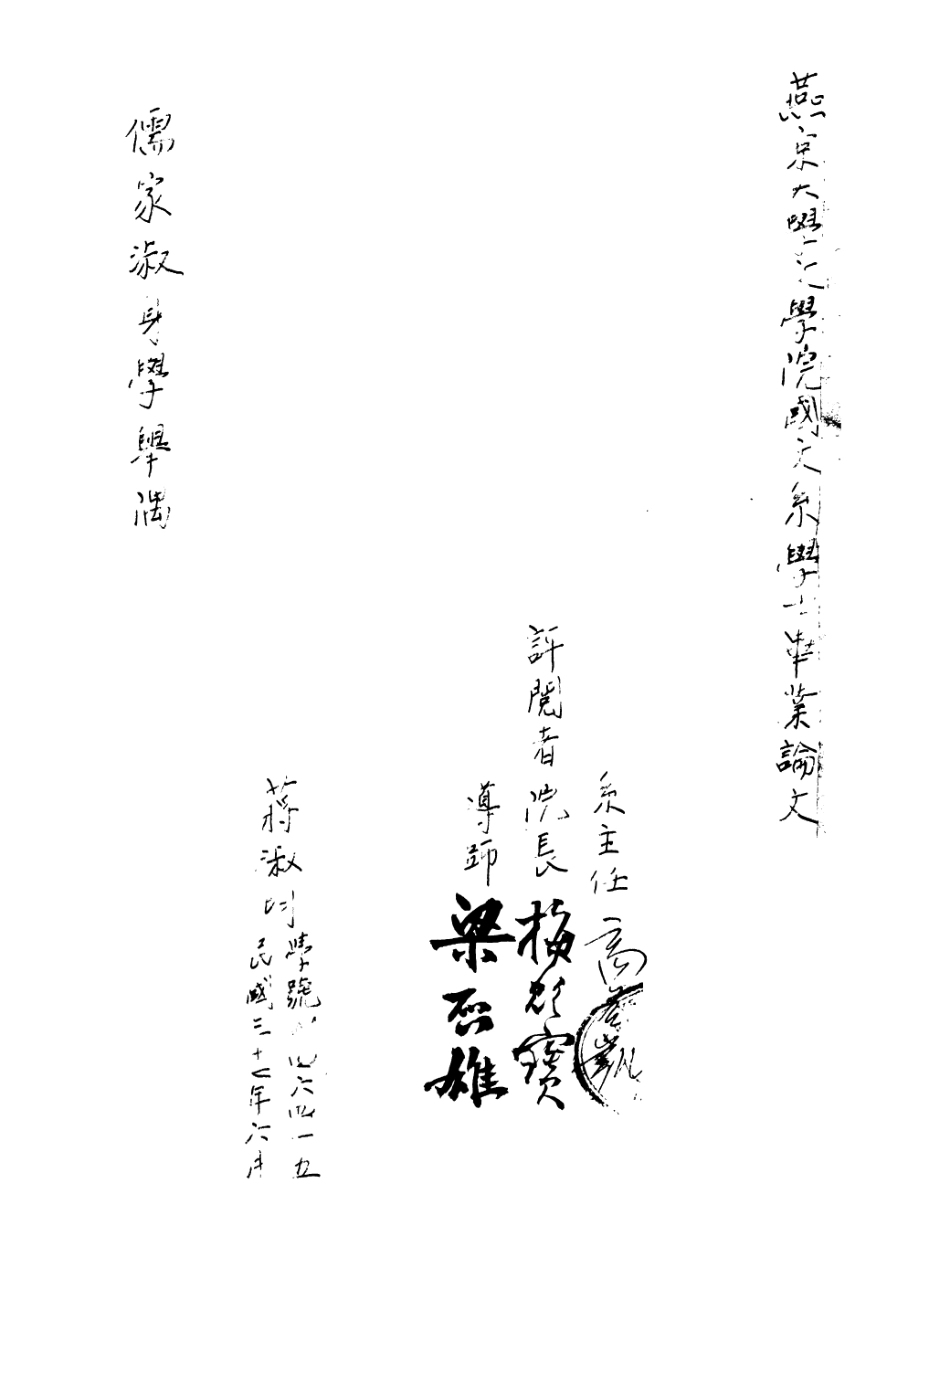 燕京大學文學院國文系學士畢業論文
系主任 高
評閱者 院長 梅貽寶
導師 梁啟雄
學號 四六四一五
蔣淑均
民國三十七年六月
儒家淑身學舉隅